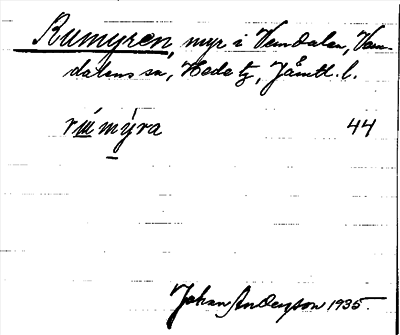 Rumyren, myr i Vemdalen, Vem-
dalens sn, Hede tg, Jämtl. l.
rɯ́mýra 44
Johan Anderson 1935.